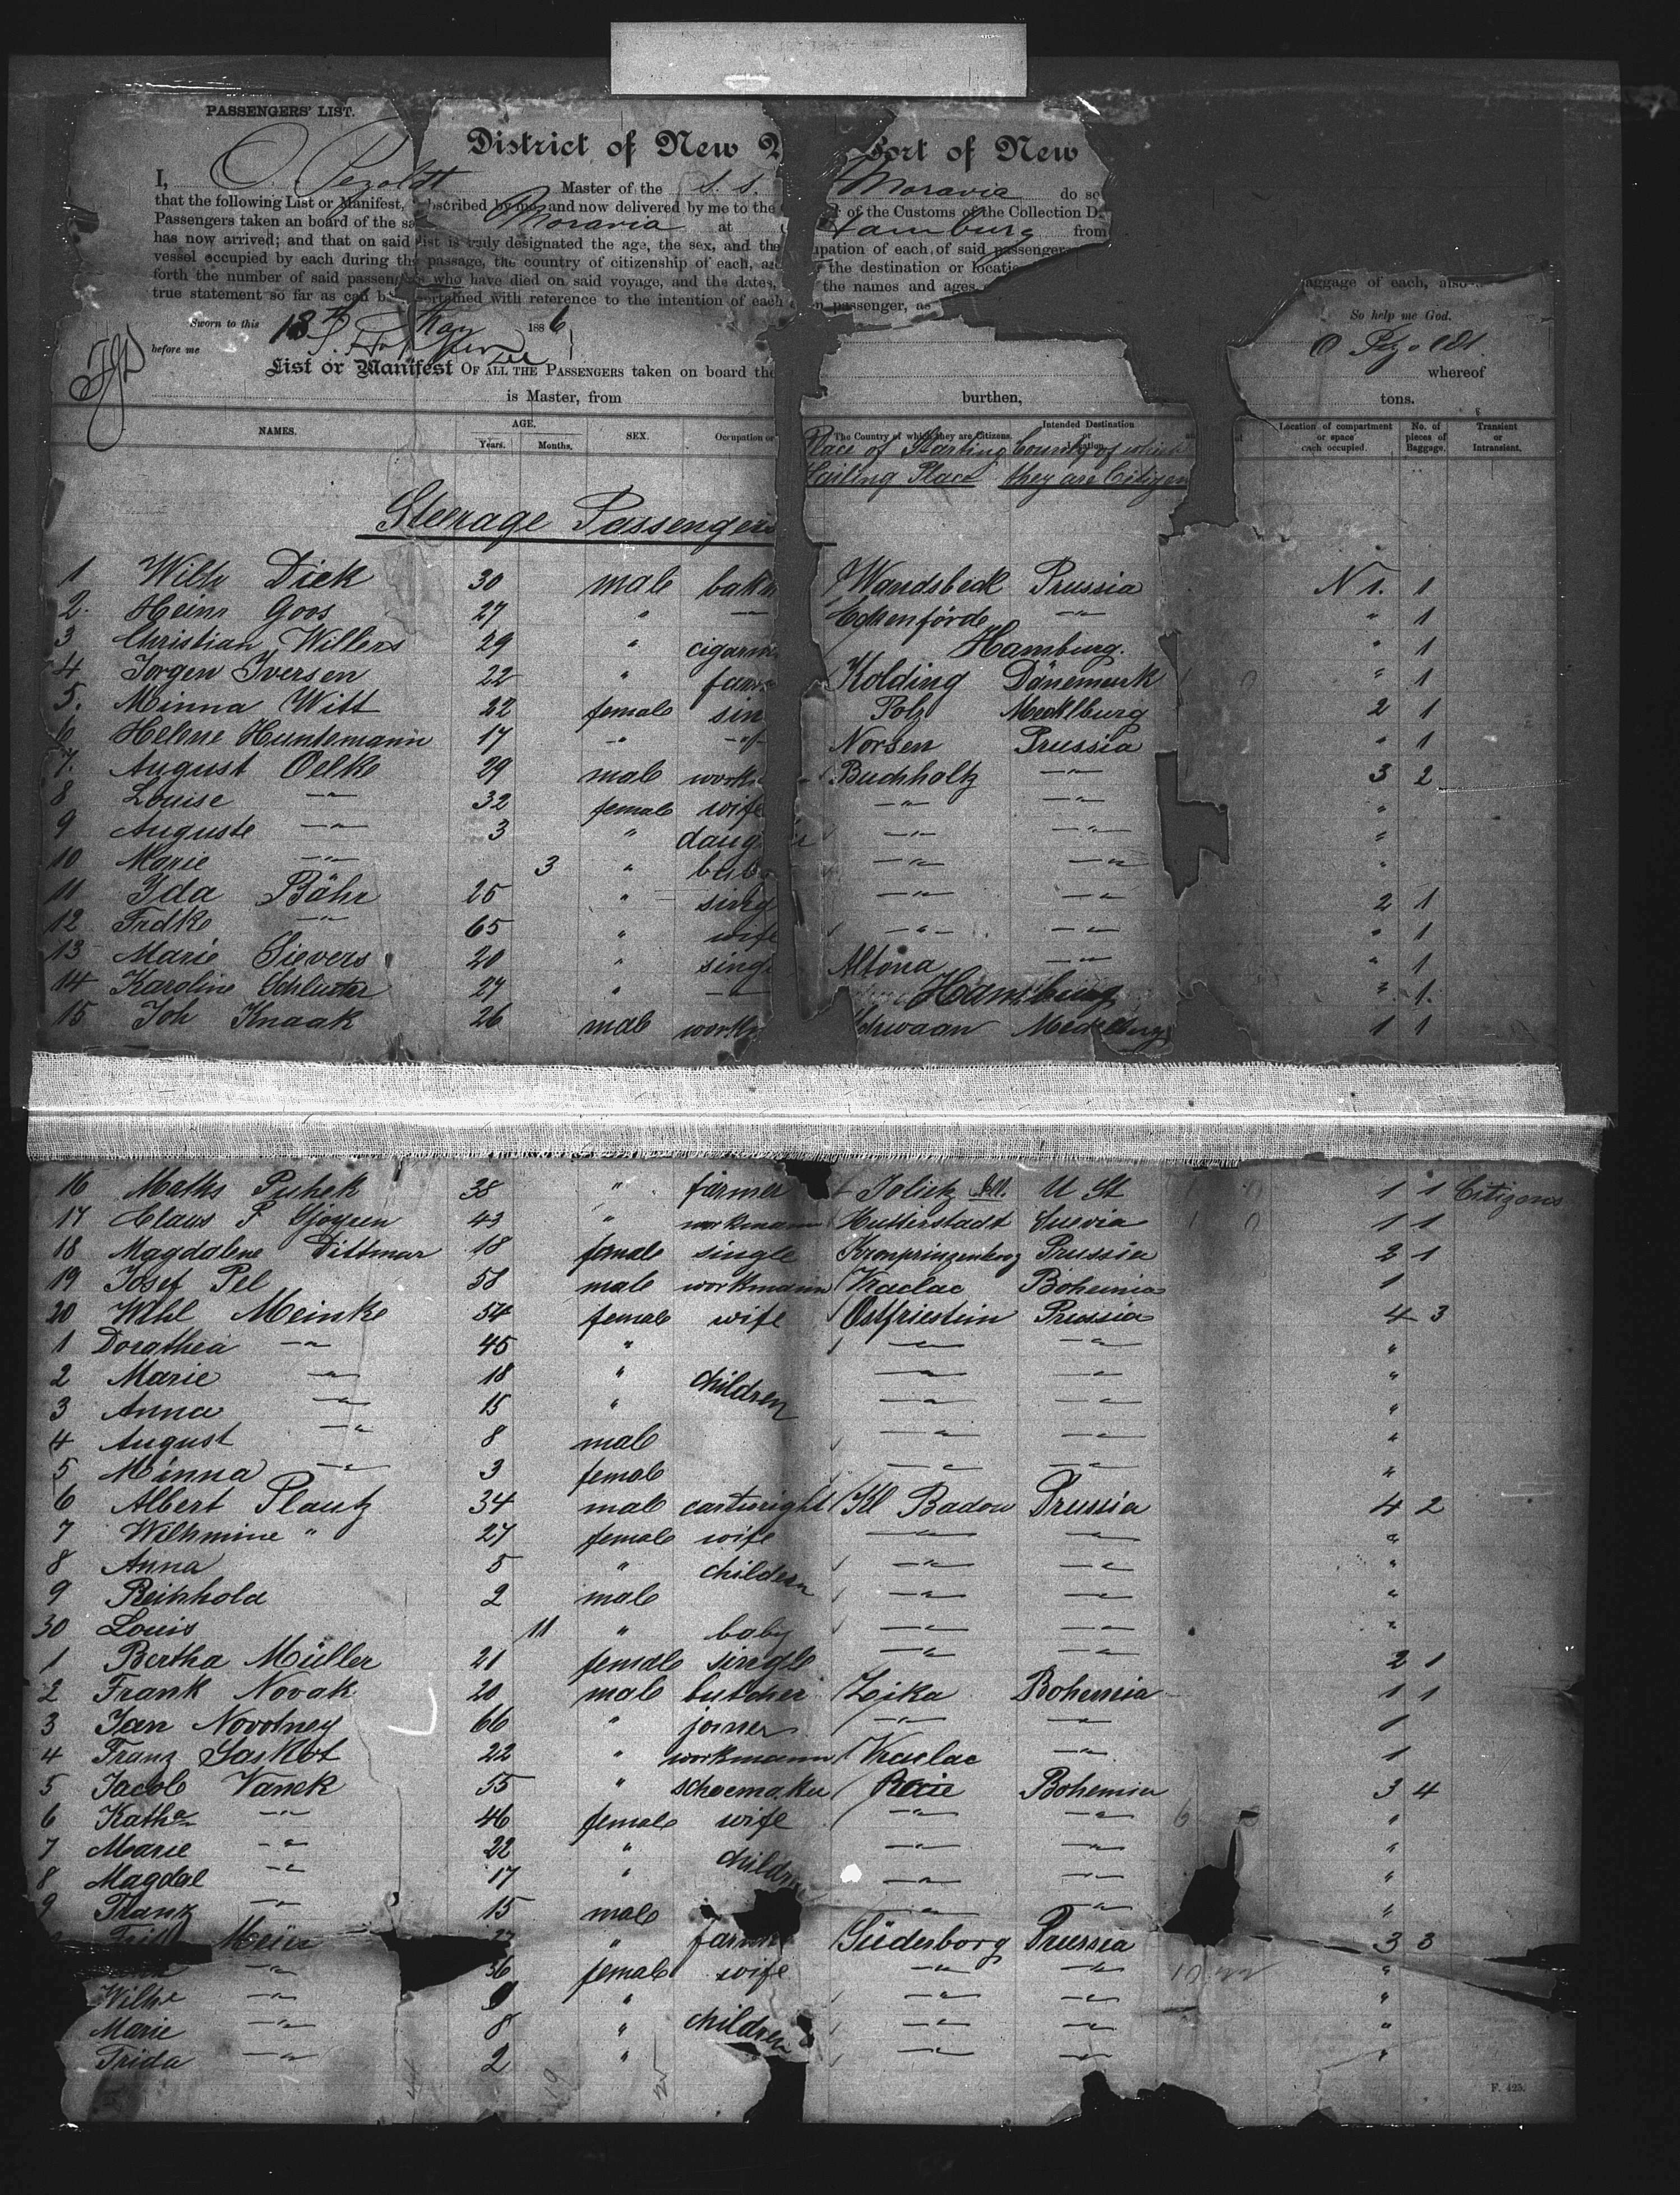 PASSENGERS' LIST.
District of New Port of New
I, O. Pezoldt Master of the S. S. Moravia do so
that the following List or Manifest, subscribed by me, and now delivered by me to the of the Customs of the Collection D
Passengers taken on board of the Moravia at Hamburg from
has now arrived; and that on said list is truly designated the age, the sex, and the occupation of each of said passengers
vessel occupied by each during the passage, the country of citizenship of each, the destination or location
forth the number of said passengers who have died on said voyage, and the dates, the names and ages aggage of each, also
true statement so far as can be ascertained with reference to the intention of each passenger, as
Sworn to this 13th May 1886 So help me God.
before me O Pezoldt
List or Manifest OF ALL THE PASSENGERS taken on board the whereof
is Master, from burthen, tons.
NAMES. AGE. Years. Months. SEX. Occupation or The Country of which they are Citizens. Intended Destination or Location. Location of compartment or space each occupied. No. of pieces of Baggage. Transient or Intransient.
Place of Starting Country of which
Hailing Place they are Citizen
Steerage Passengers
1 Wilh Dick 30 male bak Wandsbeck Prussia N 1. 1
2. Heinr Goos 27 " —"— Eckenförde —"— " 1
3 Christian Willers 29 " cigarm Hamburg. " 1
4 Jorgen Iversen 22 " farm Kolding Dänemark " 1
5. Minna Witt 22 female sin Polz Mecklburg 2 1
6 Helene Huntemann 17 —"— —"— Norsen Prussia " 1
7. August Oelke 29 male work Buchholtz —"— 3 2
8 Louise —"— 32 female wife —"— —"— "
9 Auguste —"— 3 " daug —"— —"— "
10 Marie —"— 3 " bab —"— —"— "
11 Ida Bähr 25 " sing —"— —"— 2 1
12 Frdke —"— 65 " wife —"— —"— " 1
13 Marie Sievers 20 " sing Altona —"— " 1
14 Karoline Schluter 27 " —"— Hamburg " 1.
15 Joh Knaak 26 male work chwaan Mecklburg 1 1
16 Maths Puhek 38 " farmer Jolietz Ill. U St 1 1 Citizens
17 Claus P 43 " workmann Suevia 1 1
18 Magdalene Dittmar 18 female single Kronprinzenkoog Prussia 2 1
19 Josef Pel 58 male workmann Kraclac Bohemia 1
20 Wilh Meinke 54 female wife Ostfriestein Prussia 4 3
1 Dorathea —"— 45 " —"— —"— "
2 Marie —"— 18 " children —"— —"— "
3 Anna —"— 15 " —"— —"— "
4 August —"— 8 male —"— —"— "
5 Minna —"— 3 female —"— —"— "
6 Albert Plautz 34 male cartwright Kl Badow Prussia 4 2
7 Wilhmine " 27 female wife —"— —"— "
8 Anna 5 " children —"— —"— "
9 Reinhold 2 male —"— —"— "
30 Louis 11 " baby —"— —"— "
1 Bertha Müller 21 female single —"— —"— 2 1
2 Frank Novak 20 male butcher Zika Bohemia 1 1
3 Jan Novotney 66 " joiner —"— —"— 1
4 Franz Saskot 22 " workmann Kraclac —"— 1
5 Jacob Vanek 55 " schoemaker Bohemia 3 4
6 Katha —"— 46 female wife —"— —"— "
7 Marie —"— 22 " children —"— —"— "
8 Magdal —"— 17 " —"— —"— "
9 Franz —"— 15 male —"— —"— "
Meier 37 " farmer Süderborg Prussia 3 3
—"— 36 female wife —"— —"— "
Wilhe —"— 9 " —"— —"— "
Marie —"— 8 " children —"— —"— "
Frida —"— 2 " —"— —"— "
F. 425.